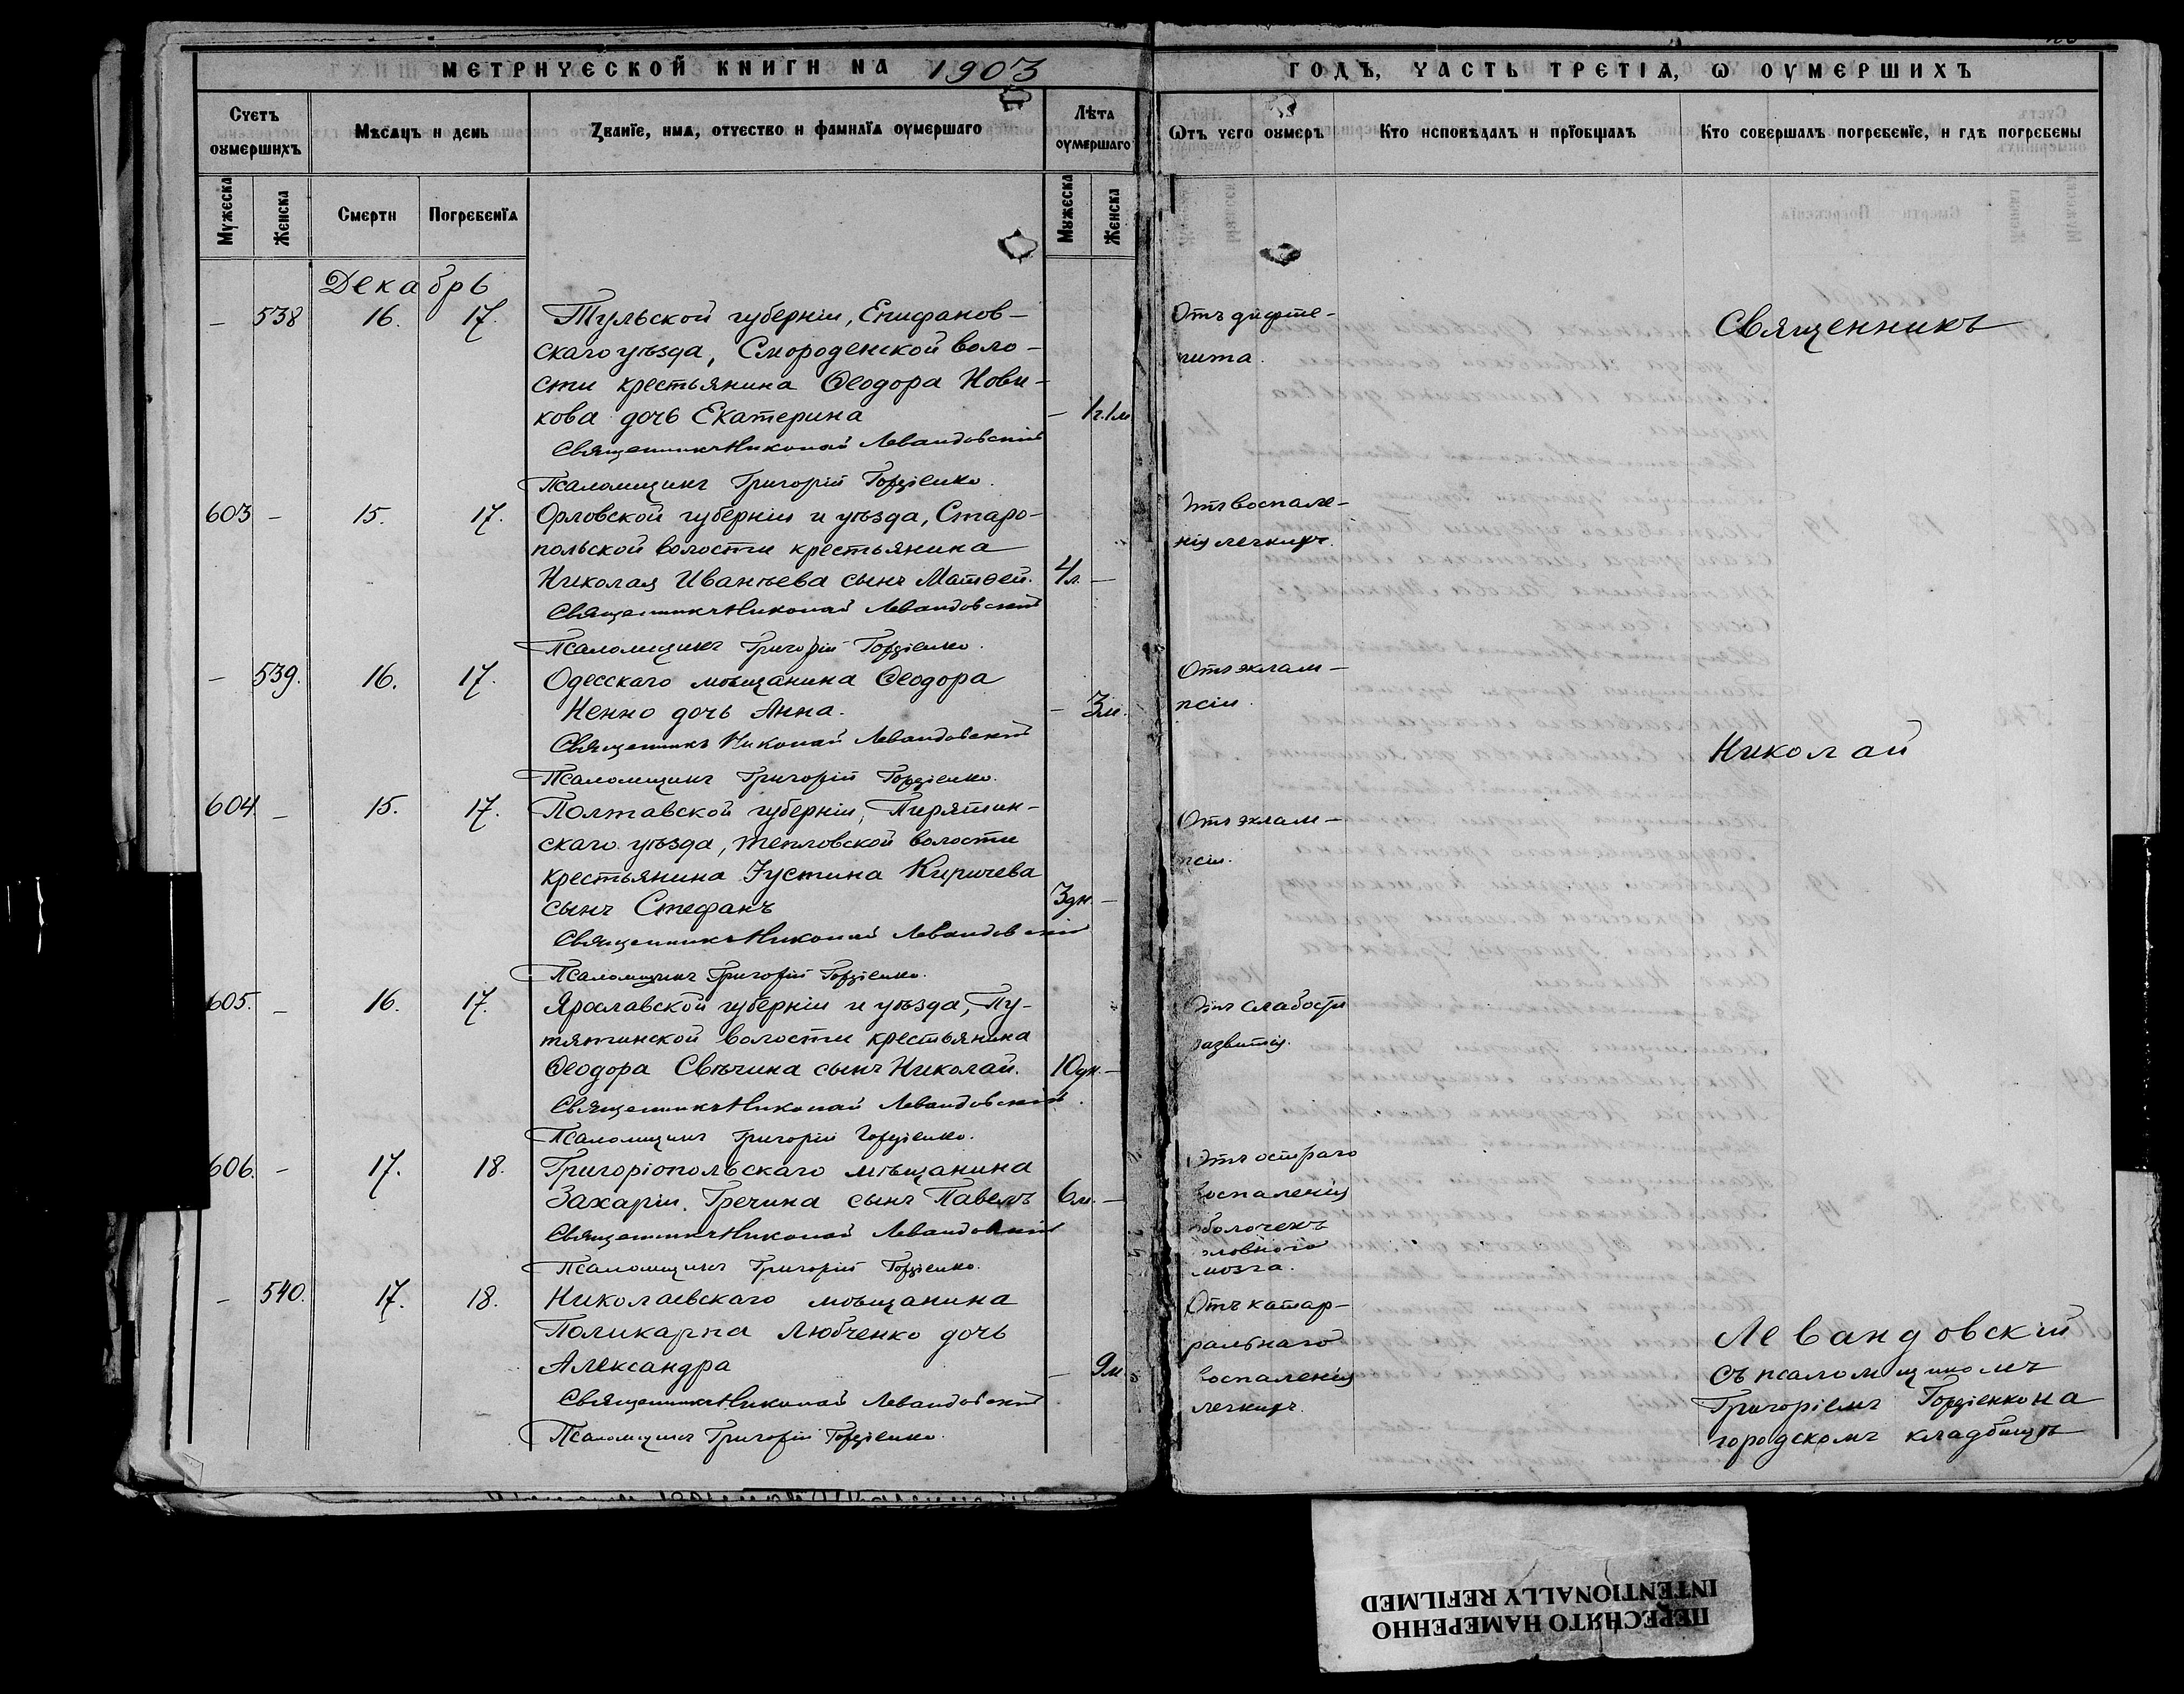 МЕТРИЧЕСКОЙ КНИГИ НА 1903
ГОДЪ, ЧАСТЬ ТРЕТІѦ, Ѡ ОУМЕРШИХЪ
Счетъ оумершихъ
Мѣсѧцъ и день
Званїе, имѧ, отчество и фамилїѧ оумершаго
Лѣта оумершаго
Ѿтъ чего оумеръ
Кто исповѣдалъ и прїобщалъ
Кто совершалъ погребенїе, и гдѣ погребены
Мужеска
Женска
Смерти
Погребенїѧ
Мужеска
Женска
Декабрь
– 538 16. 17. Тульской губерніи, Епифанов-
скаго уѣзда, Смороденской воло-
сти крестьянина Ѳеодора Нови-
кова дочь Екатерина – 1г.1м
Священникъ Николай Левандовскій
Псаломщикъ Григорій Гордіенко.
Отъ дифте-
рита.
603 – 15. 17. Орловской губерніи и уѣзда, Старо-
польской волости крестьянина
Николая Иванѣева сынъ Матѳей. 4л. –
Священникъ Николай Левандовскій
Псаломщикъ Григорій Гордіенко.
Отъ воспале-
нія легкихъ.
– 539. 16. 17. Одесскаго мѣщанина Ѳеодора
Ненно дочь Анна. – 3м.
Священникъ Николай Левандовскій
Псаломщикъ Григорій Гордіенко.
Отъ эклам-
псіи.
604. – 15. 17. Полтавской губерніи, Пирятин-
скаго уѣзда, Тепловской волости
крестьянина Іустина Киричева
сынъ Стефанъ 3дн. –
Священникъ Николай Левандовскій
Псаломщикъ Григорій Гордіенко.
Отъ эклам-
псіи.
605. – 16. 17. Ярославской губерніи и уѣзда, Пу-
тятинской волости крестьянина
Ѳеодора Свѣчина сынъ Николай. 10дн. –
Священникъ Николай Левандовскій.
Псаломщикъ Григорій Гордіенко.
Отъ слабости
развитія.
606. – 17. 18. Григоріопольскаго мѣщанина
Захаріи Гречина сынъ Павелъ 6м. –
Священникъ Николай Левандовскій
Псаломщикъ Григорій Гордіенко.
Отъ остраго
воспаленія
оболочекъ
головного
мозга.
– 540. 17. 18. Николаевскаго мѣщанина
Поликарпа Любченко дочь
Александра – 9м.
Священникъ Николай Левандовскій
Псаломщикъ Григорій Гордіенко.
Отъ катар-
ральнаго
воспаленія
легкихъ.
Священникъ
Николай
Левандовскій
съ псаломщикомъ
Григоріемъ Гордіенко на
городскомъ кладбищѣ
ПЕРЕСНЯТО НАМЕРЕННО
INTENTIONALLY REFILMED